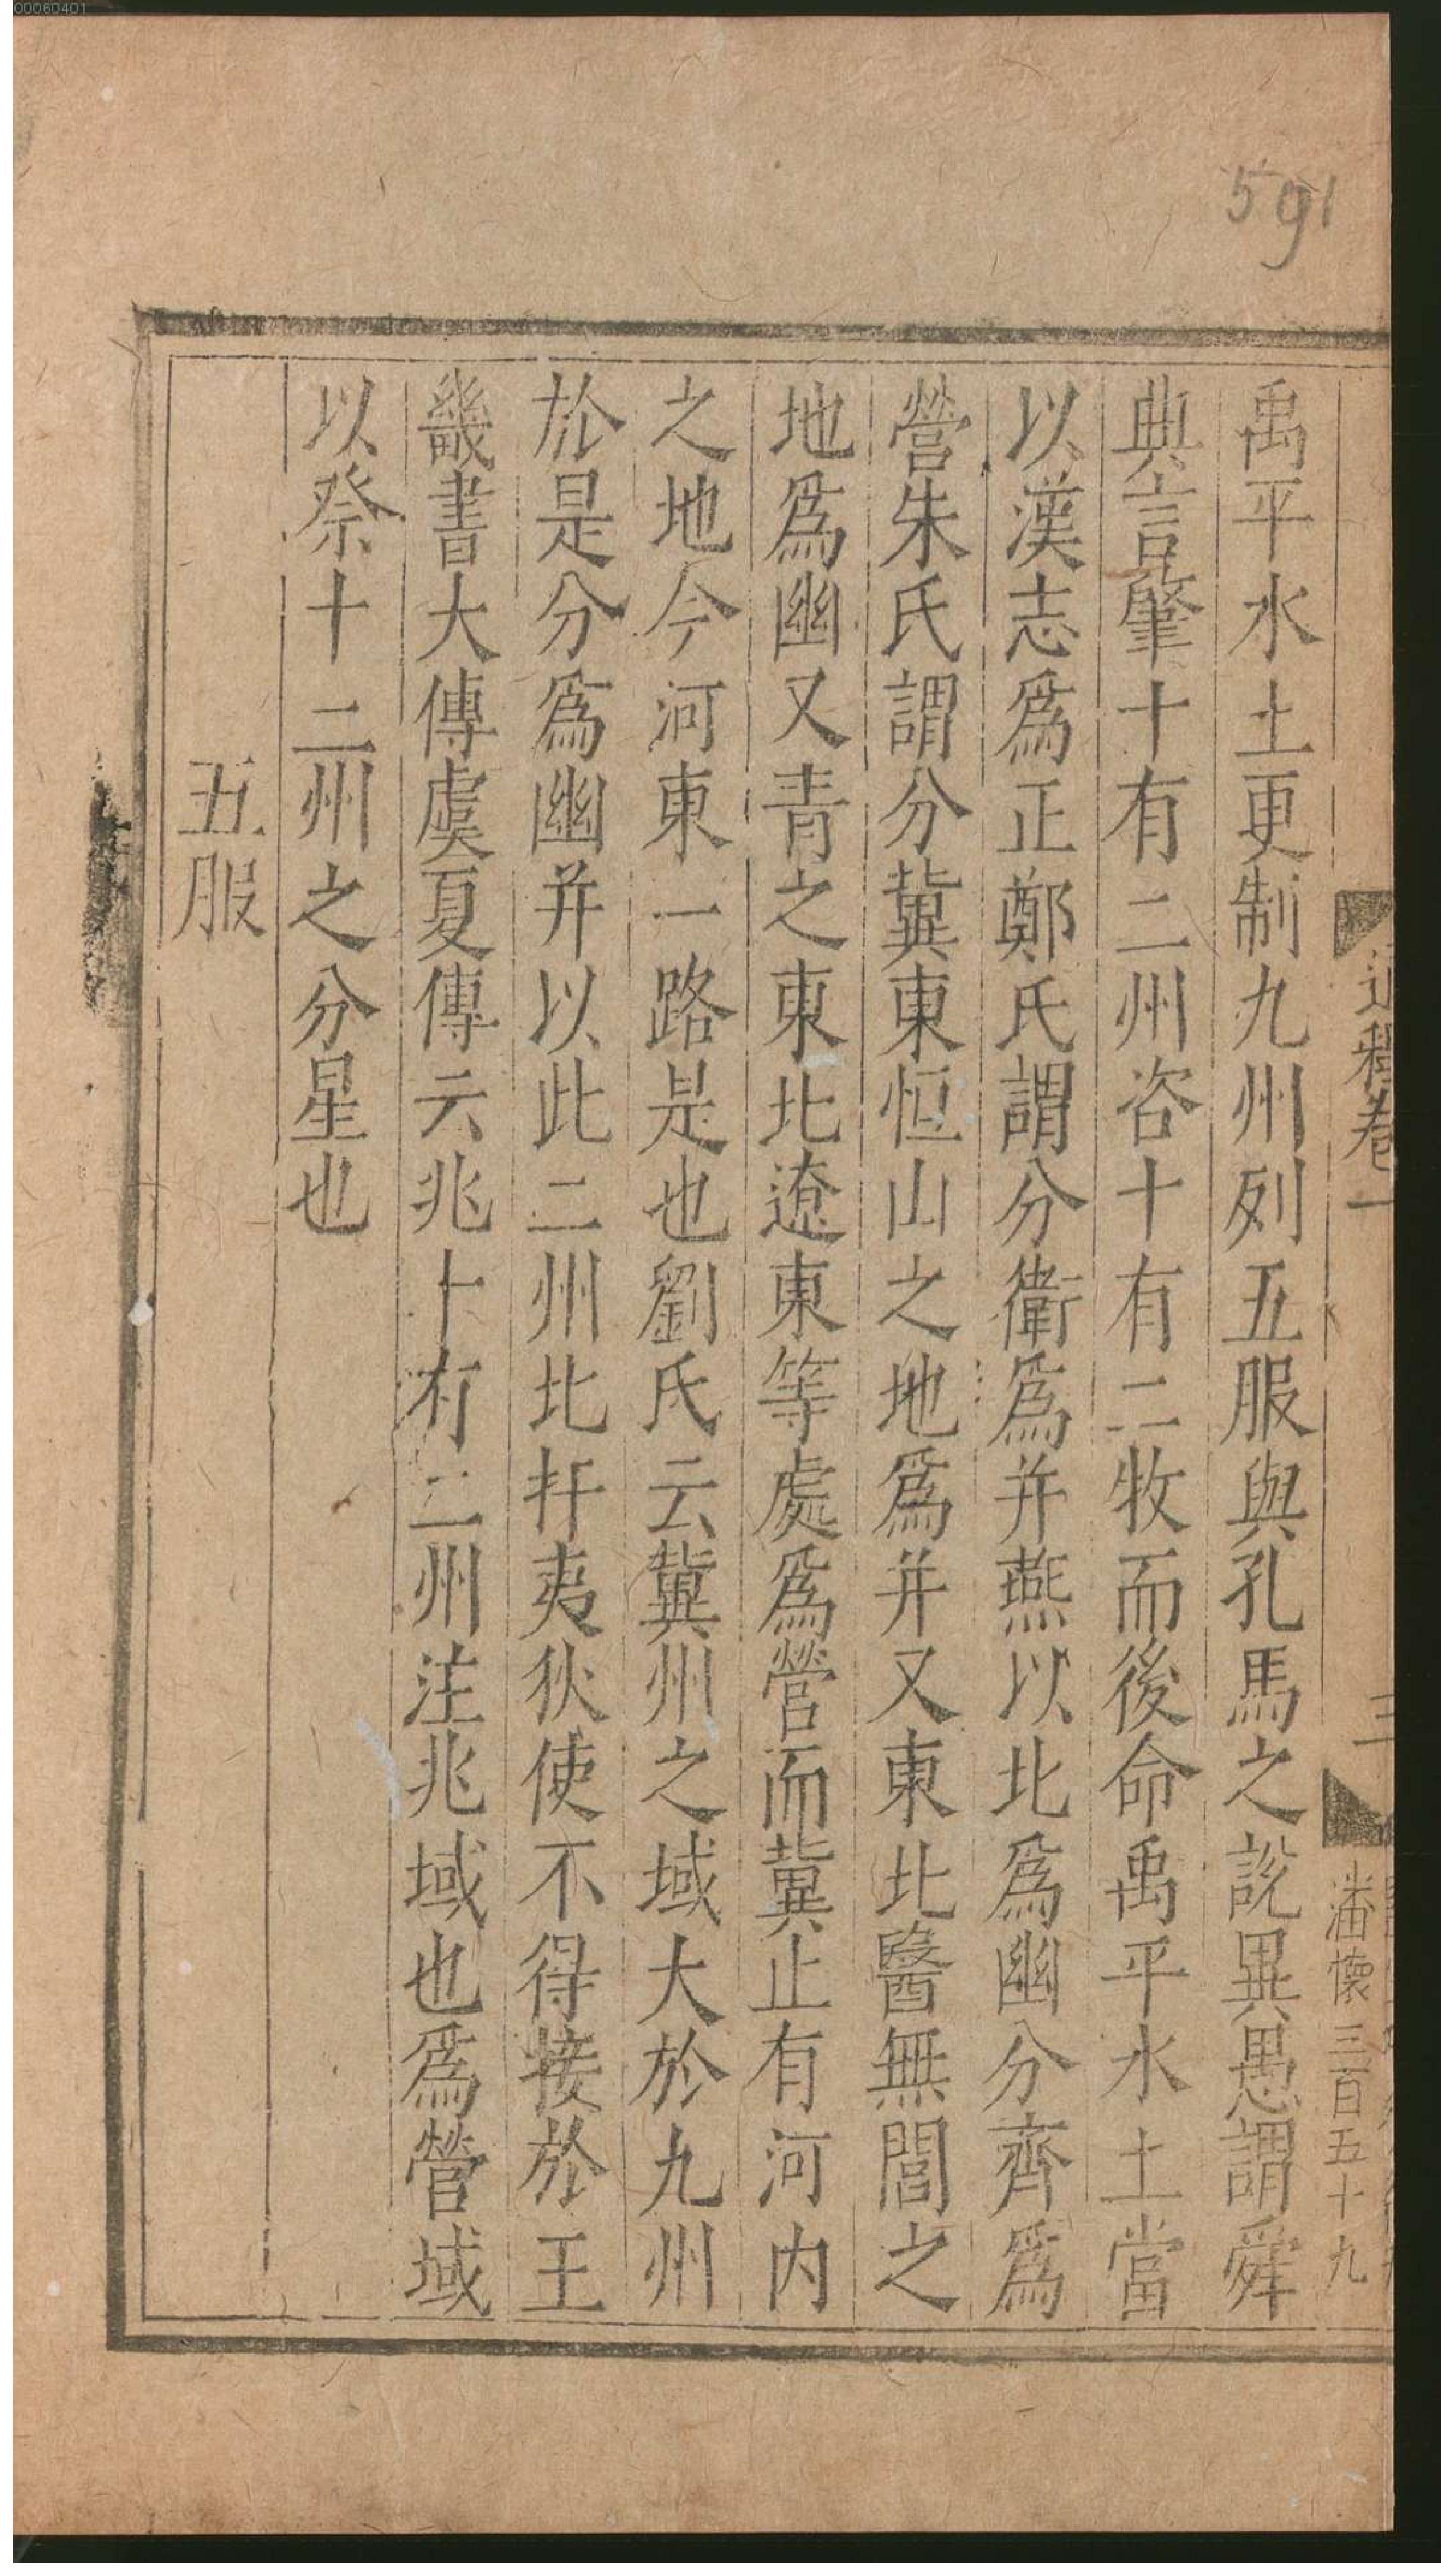 00060401
591
通釋卷一
三
潘懷三百五十九
禹平水土更制九州列五服與孔馬之説異愚謂舜
典言肇十有二州咨十有二牧而後命禹平水土當
以漢志爲正鄭氏謂分衛爲并燕以北爲幽分齊爲
營朱氏謂分冀東恒山之地爲并又東北醫無閭之
地爲幽又青之東北遼東等處爲營而冀止有河内
之地今河東一路是也劉氏云冀州之域大於九州
於是分爲幽并以此二州北扞夷狄使不得接於王
畿書大傳虞夏傳云兆十有二州注兆域也爲營域
以祭十二州之分星也
五服